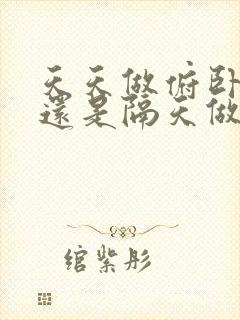 天天做俯卧
還是隔天做
綰紫彤